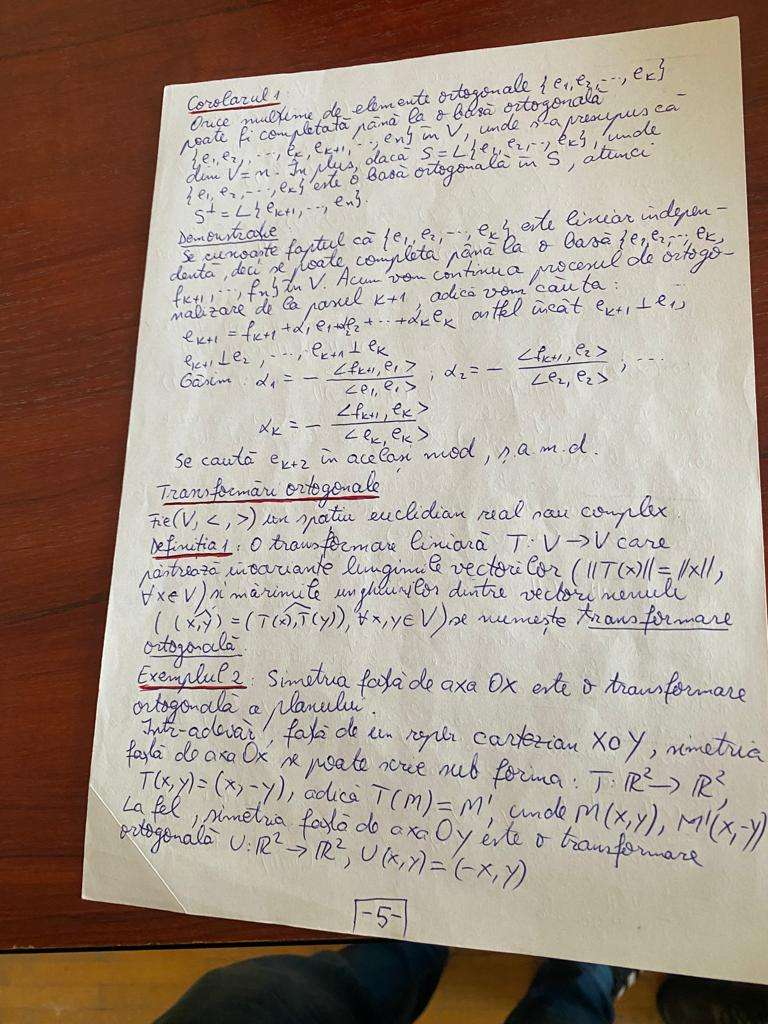 Corolarul 1.
Orice mulțime de elemente ortogonale {e₁, e₂, ..., eₖ}
poate fi completată până la o bază ortogonală
{e₁, e₂, ..., eₖ, eₖ₊₁, ..., eₙ} în V, unde s-a presupus că
dim V = n. În plus, dacă S = L{e₁, e₂, ..., eₖ}, unde
{e₁, e₂, ..., eₖ} este o bază ortogonală în S, atunci
S^⊥ = L{eₖ₊₁, ..., eₙ}.
Demonstrație
Se cunoaște faptul că {e₁, e₂, ..., eₖ} este liniar indepen-
dentă, deci se poate completa până la o bază {e₁, e₂, ..., eₖ,
fₖ₊₁, ..., fₙ} în V. Acum vom continua procesul de ortogo-
nalizare de la pasul k+1, adică vom căuta:
eₖ₊₁ = fₖ₊₁ + α₁e₁ + α₂e₂ + ... + αₖeₖ astfel încât eₖ₊₁ ⊥ e₁,
eₖ₊₁ ⊥ e₂, ..., eₖ₊₁ ⊥ eₖ
Găsim: α₁ = - <fₖ₊₁, e₁> / <e₁, e₁> ; α₂ = - <fₖ₊₁, e₂> / <e₂, e₂> ; ...
αₖ = - <fₖ₊₁, eₖ> / <eₖ, eₖ>
Se caută eₖ₊₂ în același mod, ș.a.m.d.
Transformări ortogonale
Fie (V, <, >) un spațiu euclidian real sau complex.
Definiția 1: O transformare liniară T: V → V care
păstrează invariante lungimile vectorilor (||T(x)|| = ||x||,
∀x∈V) și mărimile unghiurilor dintre vectori nenuli
((x,y)^ = (T(x),T(y))^, ∀x,y∈V) se numește transformare
ortogonală.
Exemplul 2: Simetria față de axa Ox este o transformare
ortogonală a planului.
Într-adevăr, față de un reper cartezian XOY, simetria
față de axa Ox se poate scrie sub forma: T: ℝ² → ℝ²,
T(x,y) = (x,-y), adică T(M) = M', unde M(x,y), M'(x,-y)
La fel, simetria față de axa Oy este o transformare
ortogonală U: ℝ² → ℝ², U(x,y) = (-x,y)
-5-